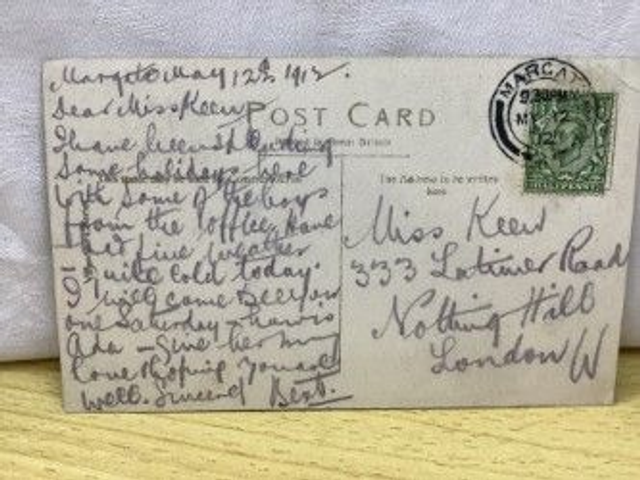 Margate May 12th 1912.
Dear Miss Keen
POST CARD
I have been spending
some holidays here
The Address to be written
here.
with some of the boys
from the office. Have
had fine weather
- quite cold today.
I will come & see you
one Saturday - how is
Ada - give her my
love. Hoping you are all
well. Sincerely Bert.
MARGATE
MY 12
12
Miss Keen
333 Latimer Road
Notting Hill
London W